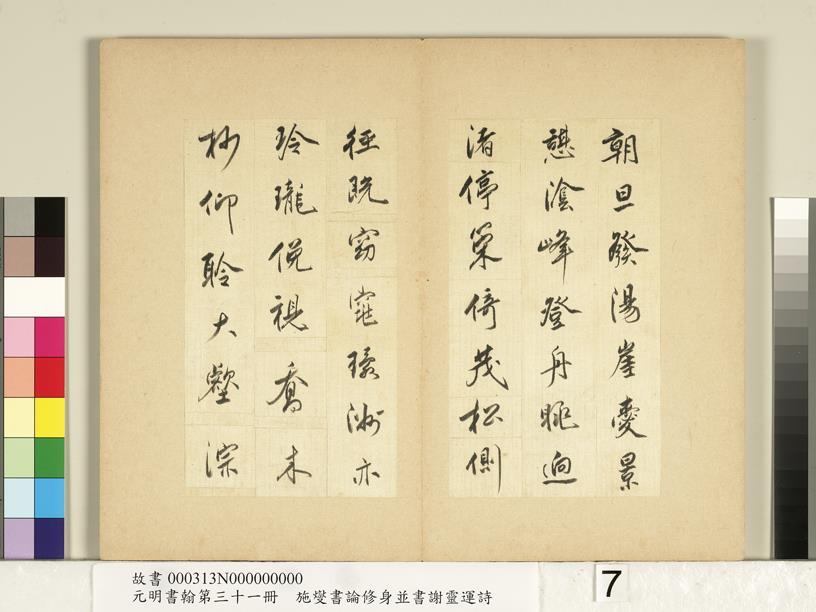 朝旦發湯崖景
憩陰峰登舟眺迥
渚停策倚茂松側
徑既窈窕環洲亦
玲瓏俛視喬木
杪仰聆大壑淙
故書 000313N000000000
元明書翰第三十一冊　施燮書論修身並書謝靈運詩
7